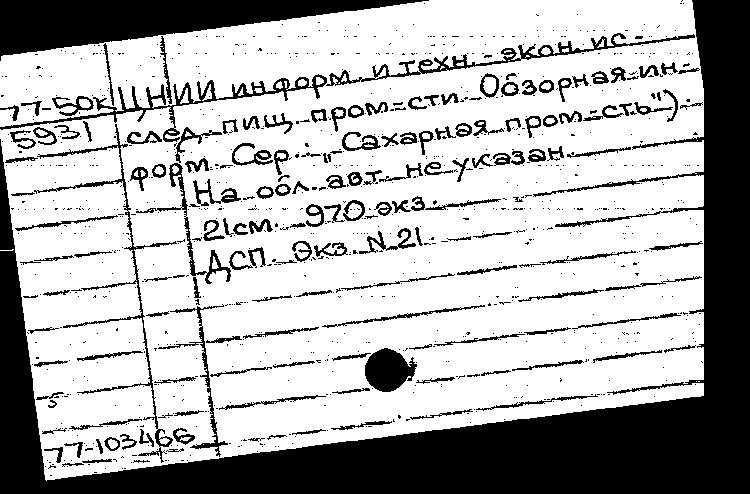 77-50к ЦНИИ информ. и техн.-экон. ис-
5931 след. пищ. пром-сти. Обзорная ин-
форм. Сер.: „Сахарная пром-сть").
На обл. авт. не указан.
21см. 970 экз.
ДСП. Экз. N 21.
5
77-103466